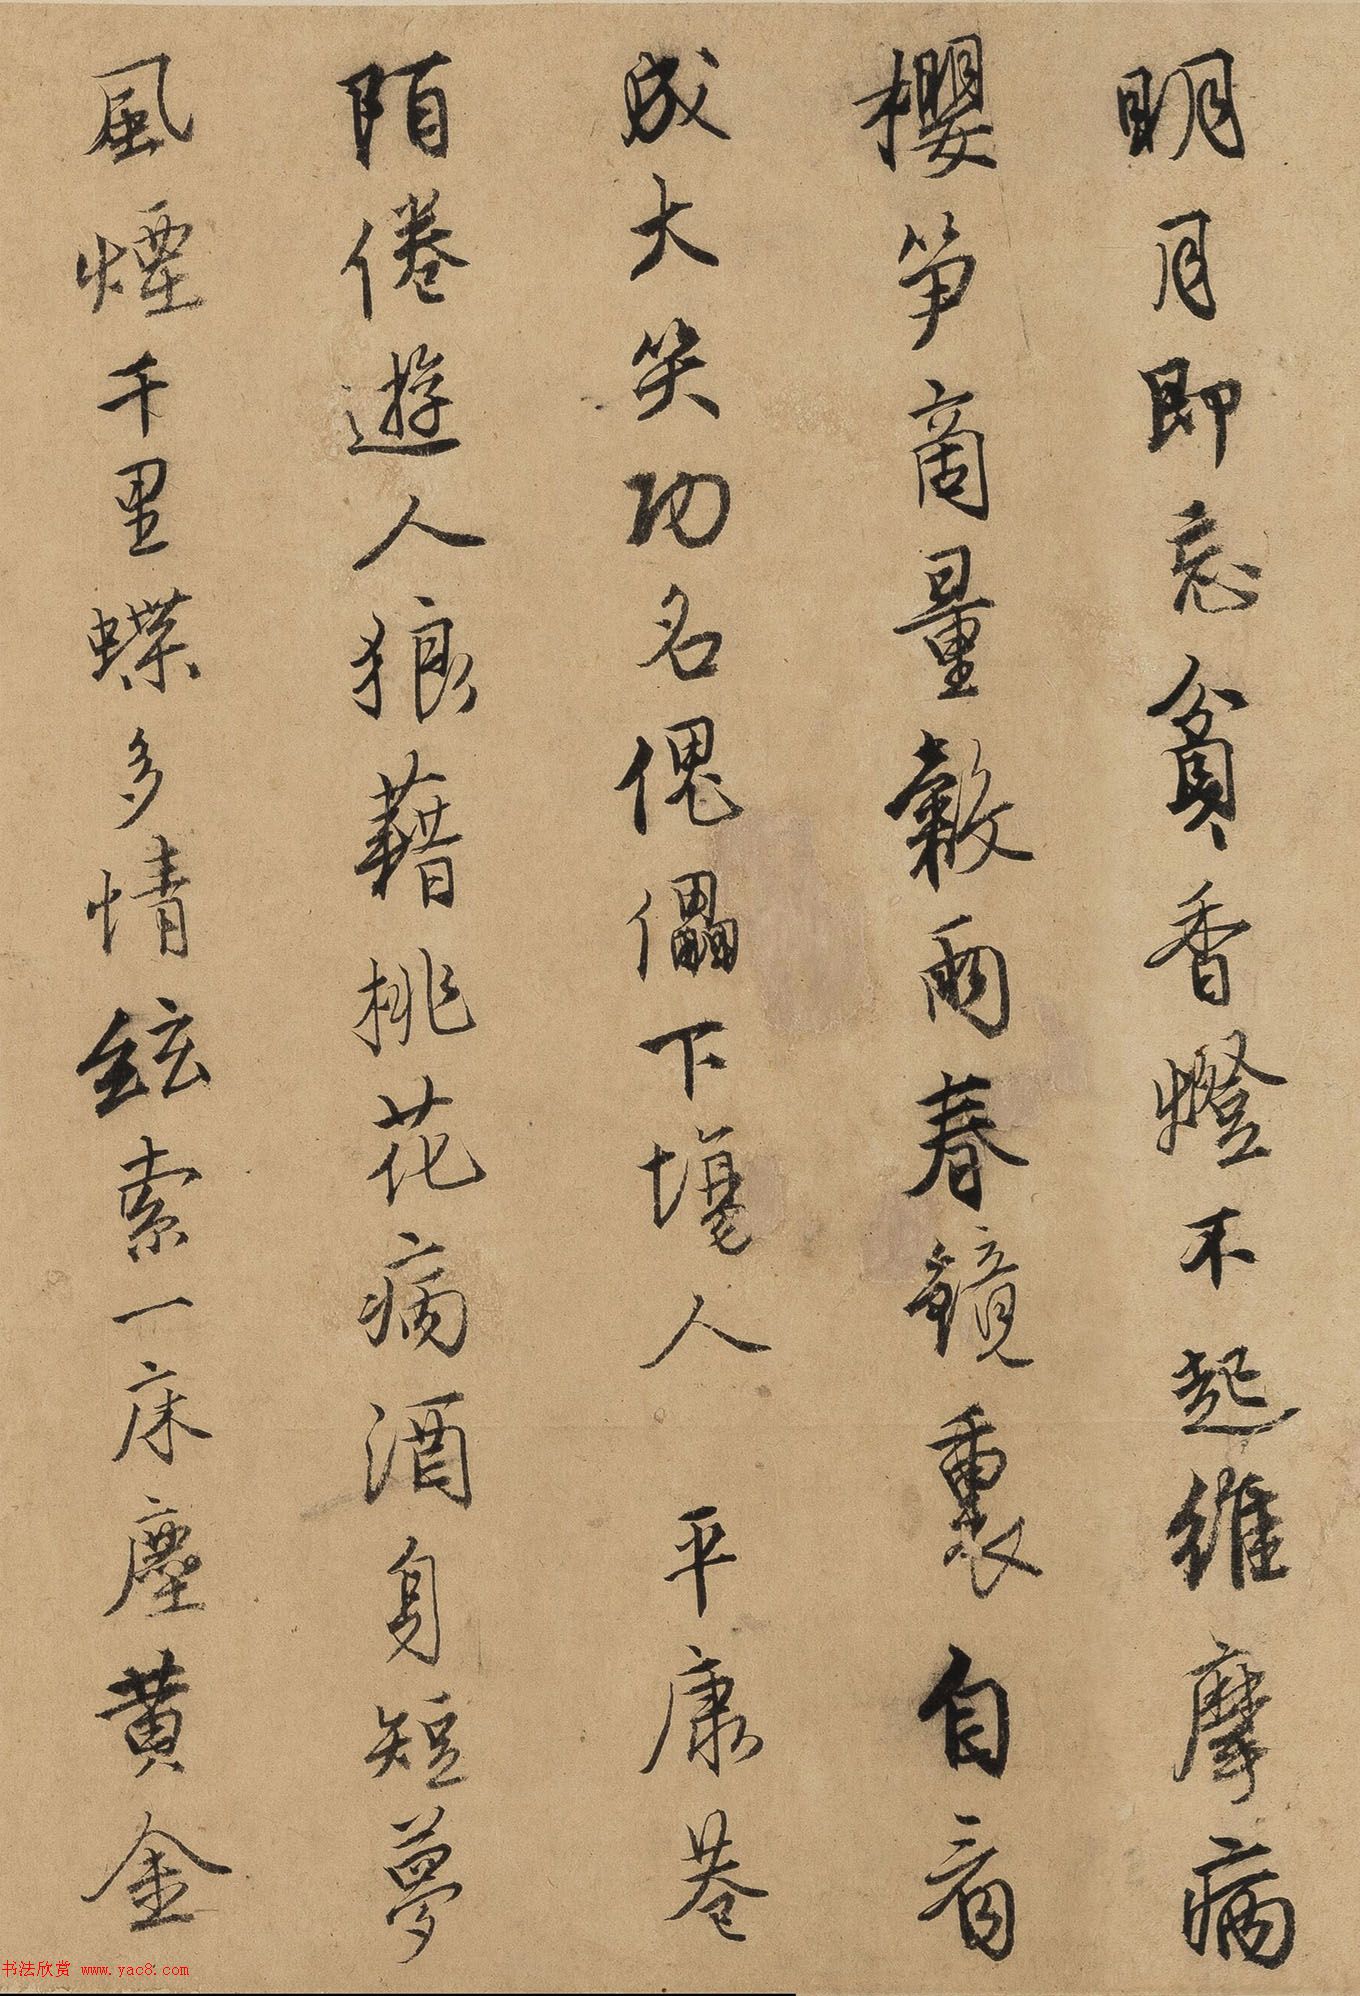 明月即忘貧香燈不起維摩病
櫻笋啇量穀雨春鏡裏自看
成大笑功名傀儡下塲人 平康巷
陌倦遊人狼藉桃花病酒身短夢
風煙千里蝶多情絃索一床塵黄金
书法欣赏 www.yac8.com